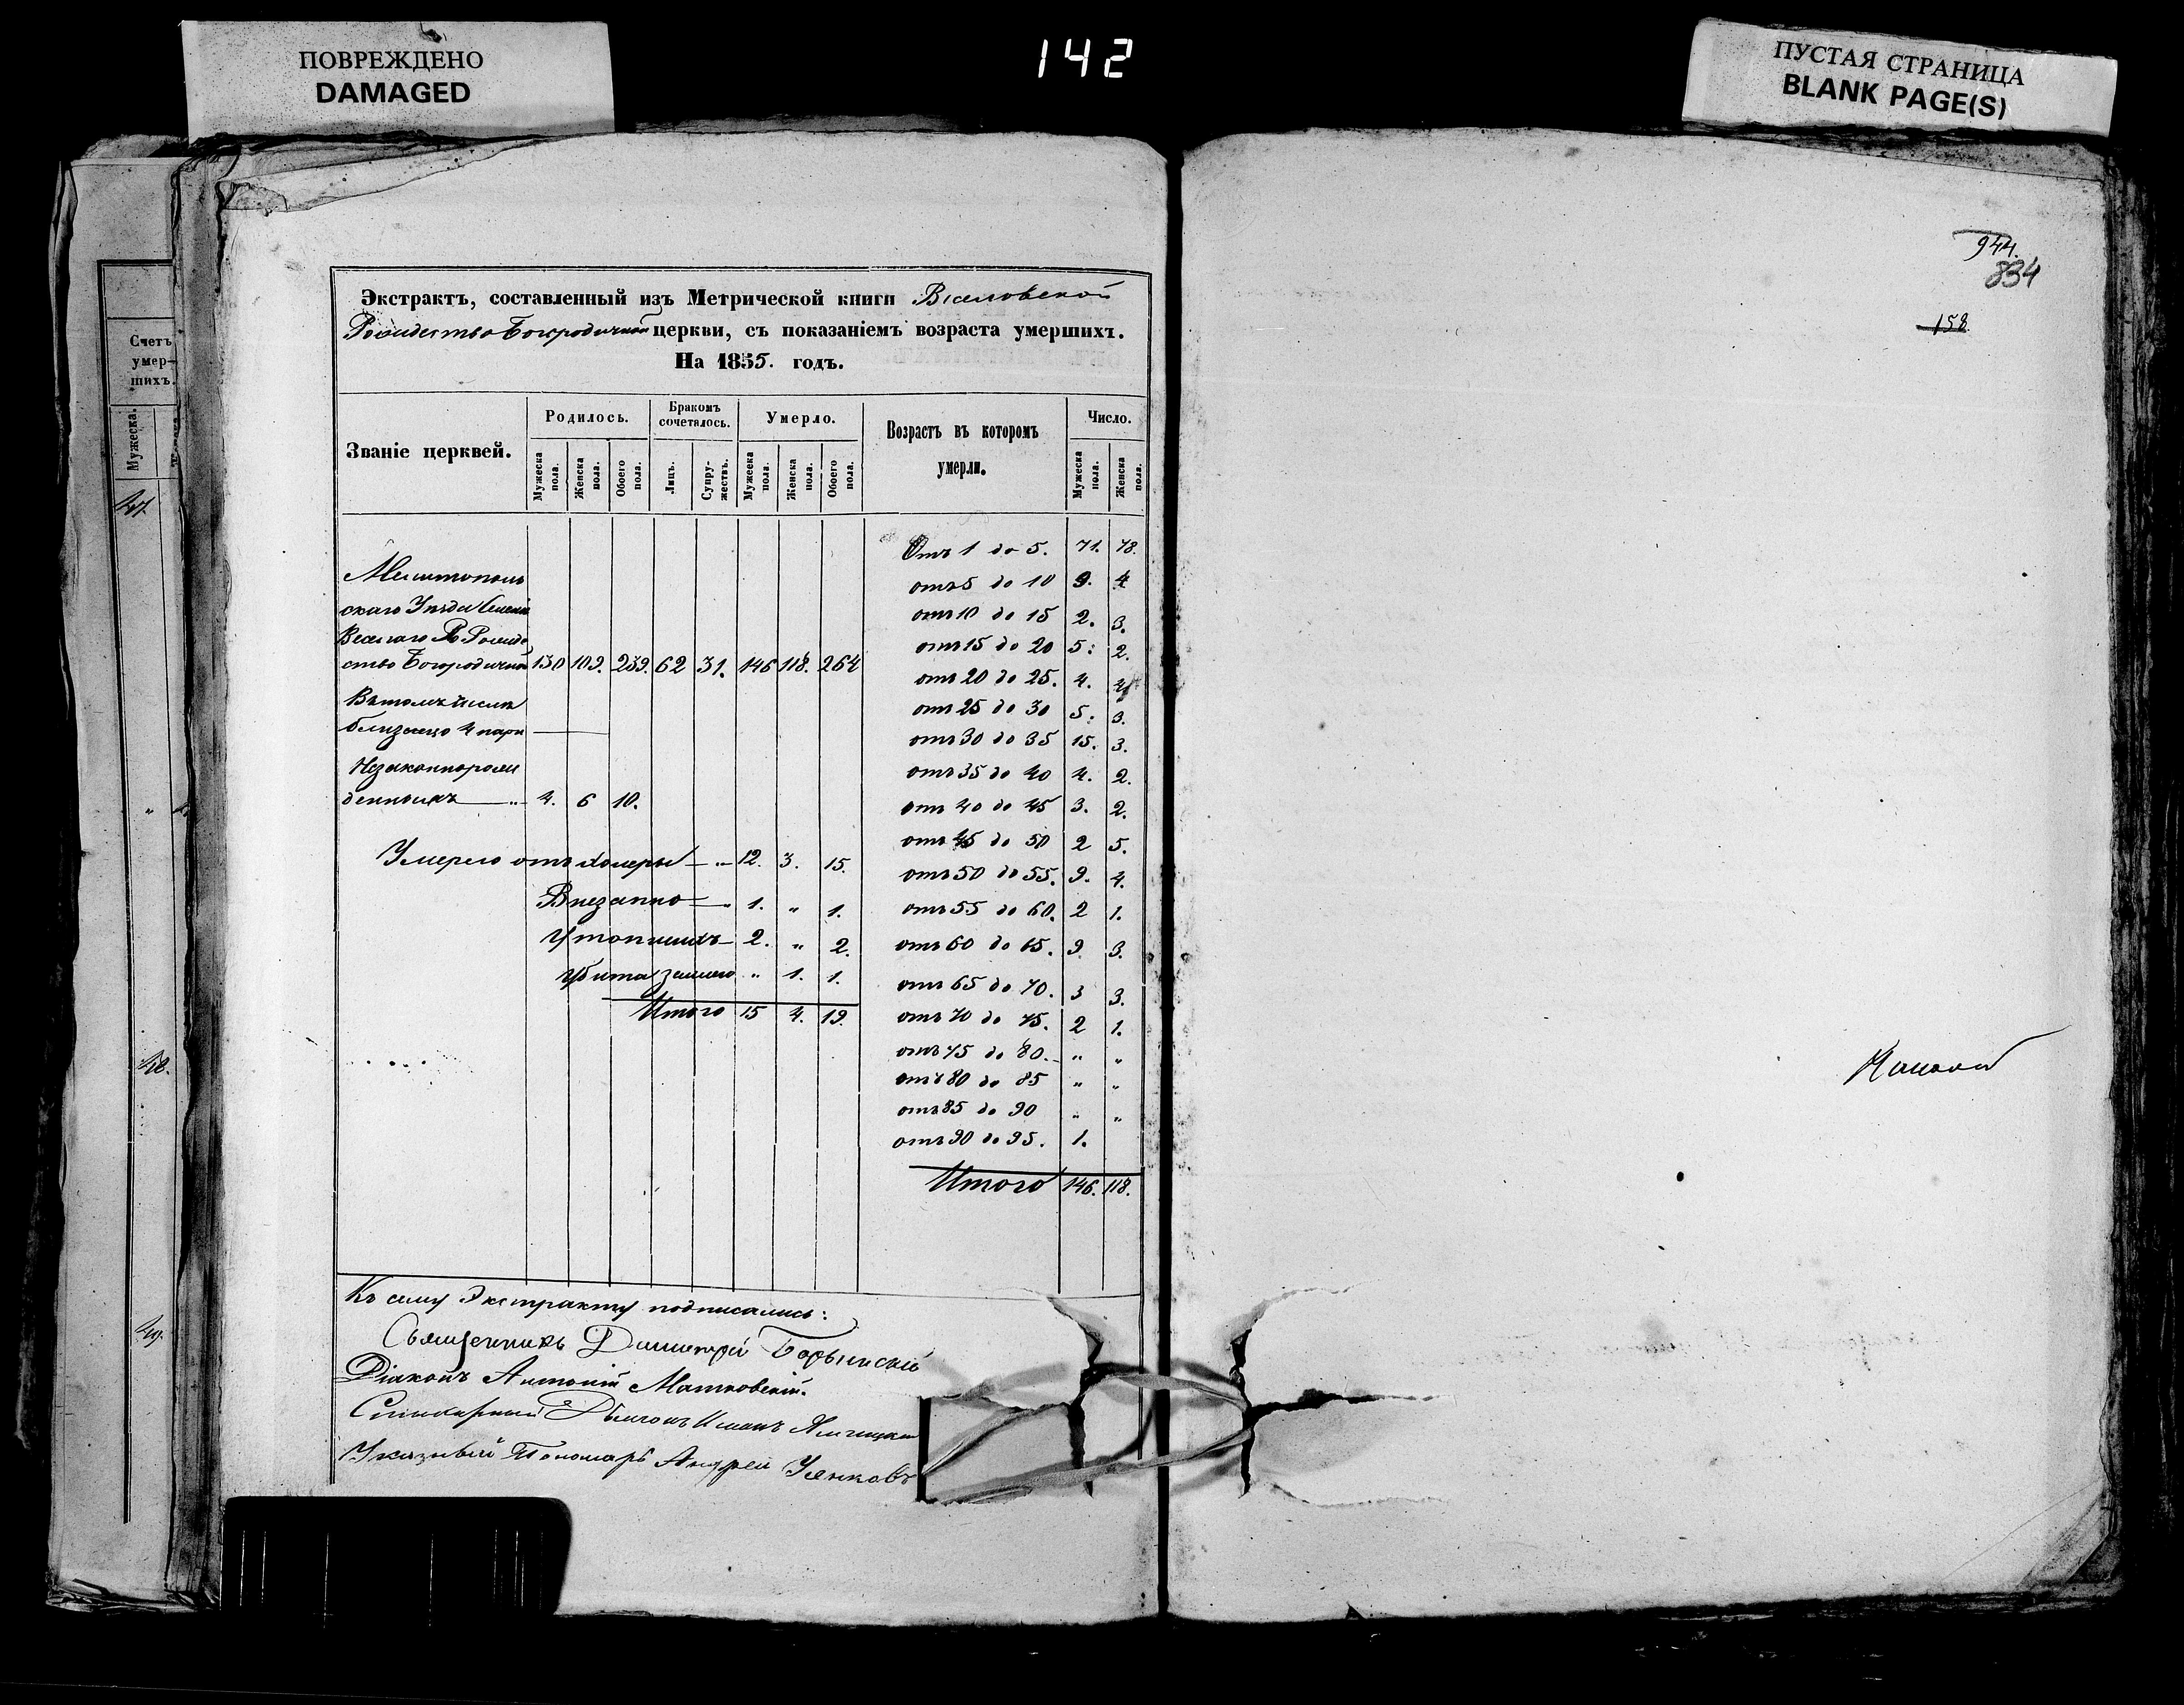 ПОВРЕЖДЕНО
DAMAGED
142
ПУСТАЯ СТРАНИЦА
BLANK PAGE(S)
Счетъ
умер-
шихъ.
Мужеска.
47.
48.
49.
Экстрактъ, составленный изъ Метрической книги Веселовской
Рождество Богородичной церкви, съ показаніемъ возраста умершихъ.
На 1855. годъ.
Званіе церквей.
Родилось.
Бракомъ сочеталось.
Умерло.
Возрастъ въ которомъ умерли.
Число.
Мужеска пола.
Женска пола.
Обоего пола.
Лицъ.
Супру-жествъ.
Мужеска пола.
Женска пола.
Обоего пола.
Мужеска пола.
Женска пола.
Мелитополь
скаго Уѣзда Селенія
Веселаго Рожде
ство Богородичной 130 109. 239. 62 31. 146 118. 264
Въ томъ числѣ
близнецо 4 пари
Незаконнорож
денныхъ 4. 6 10.
Умерло отъ холеры 12. 3. 15.
Внезапно 1. " 1.
Утопшихъ 2. " 2.
Убита " 1. 1.
Итого 15 4. 19.
Отъ 1 до 5. 71. 78.
отъ 5 до 10 9. 4
отъ 10 до 15 2. 3.
отъ 15 до 20 5: 2.
отъ 20 до 25. 4. 4
отъ 25 до 30 5: 3.
отъ 30 до 35 15. 3.
отъ 35 до 40 4. 2.
отъ 40 до 45 3. 2.
отъ 45 до 50 2 5.
отъ 50 до 55. 9. 4.
отъ 55 до 60. 2 1.
отъ 60 до 65. 9. 3.
отъ 65 до 70. 3 3.
отъ 70 до 75. 2 1.
отъ 75 до 80. " "
отъ 80 до 85 " "
отъ 85 до 90 " "
отъ 90 до 95. 1.
Итого 146. 118.
Къ сему Экстракту подписались:
Священникъ Димитрій Борынскій
Діаконъ Антоній Матковскій.
Иванъ
Указный Пономарь Андрей Усенковъ
944.
834
158